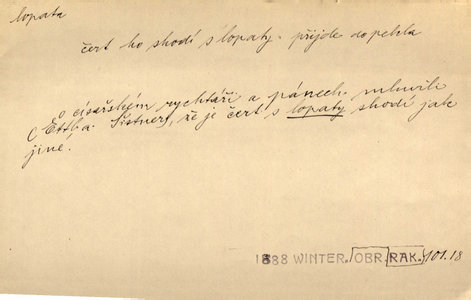 lopata
čert ho shodí s lopaty. přijde do pekla
o císařském rychtáři a pánech mluvili
že je čert s lopaty shodí jak
jiné.
1888 WINTER. OBR. RAK. 101.18